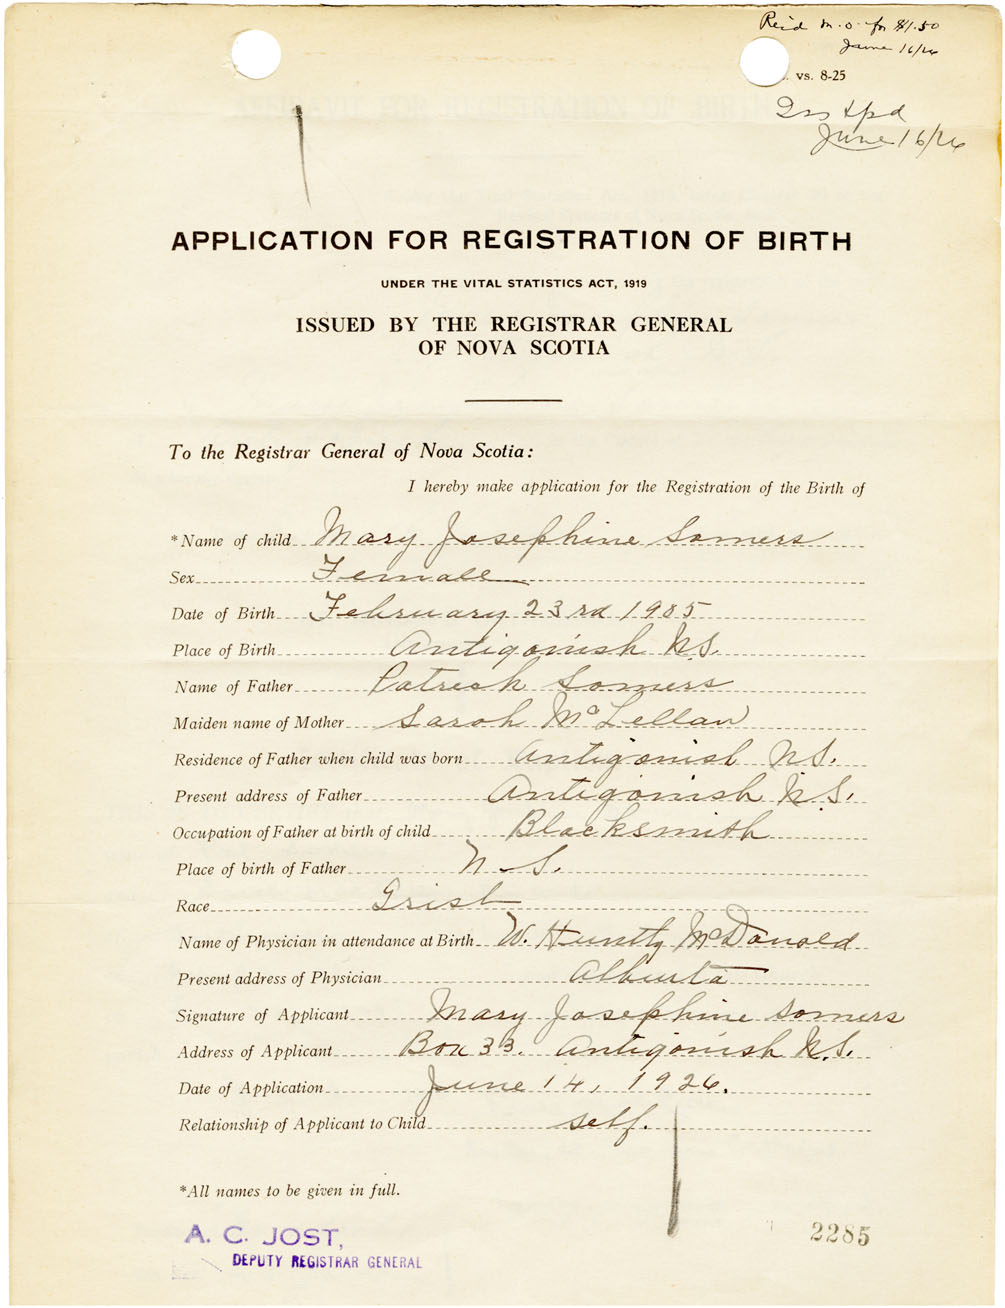 Rec'd M.O. for $1.50
June 16/26
. vs. 8-25
June 16/26
APPLICATION FOR REGISTRATION OF BIRTH
UNDER THE VITAL STATISTICS ACT, 1919
ISSUED BY THE REGISTRAR GENERAL
OF NOVA SCOTIA
To the Registrar General of Nova Scotia:
I hereby make application for the Registration of the Birth of
*Name of child Mary Josephine Somers
Sex Female
Date of Birth February 23rd 1905
Place of Birth Antigonish N.S.
Name of Father Patrick Somers
Maiden name of Mother Sarah McLellan
Residence of Father when child was born Antigonish N.S.
Present address of Father Antigonish N.S.
Occupation of Father at birth of child Blacksmith
Place of birth of Father N.S.
Race Irish
Name of Physician in attendance at Birth W. Huntly McDonald
Present address of Physician Alburta
Signature of Applicant Mary Josephine Somers
Address of Applicant Box 33. Antigonish N.S.
Date of Application June 14, 1926.
Relationship of Applicant to Child self.
*All names to be given in full.
A. C. JOST,
DEPUTY REGISTRAR GENERAL
2285